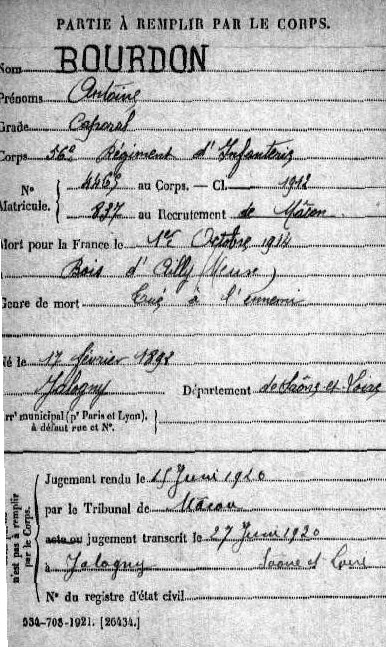 PARTIE À REMPLIR PAR LE CORPS.
Nom BOURDON
Prénoms Antoine
Grade Caporal
Corps 56e Régiment d'Infanterie
N° Matricule. { 4469 au Corps. — Cl. 1912
837 au Recrutement de Mâcon
Mort pour la France le 1er Octobre 1914
Bois d'Ailly (Meuse)
Genre de mort Tué à l'ennemi
Né le 17 février 1892
Jalogny Département de Saône-et-Loire
Arr' municipal (pr Paris et Lyon),
à défaut rue et N°.
n'est pas à remplir
par le Corps.
Jugement rendu le 15 Juin 1920
par le Tribunal de Macon
acte ou jugement transcrit le 27 Juin 1920
à Jalogny Saône et Loire
N° du registre d'état civil
534-708-1921. [26434.]